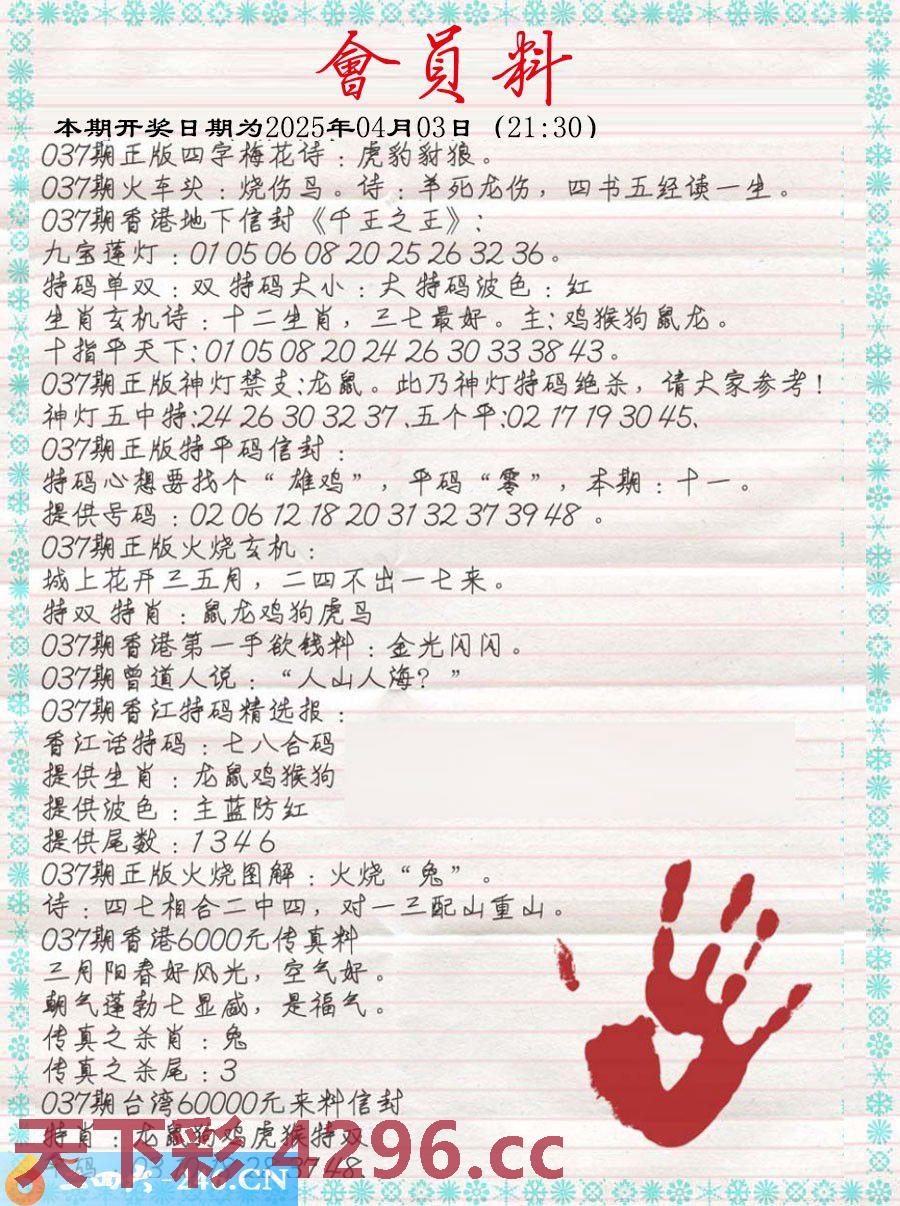 會員料
本期开奖日期为2025年04月03日（21:30）
037期正版四字梅花诗：虎豹豺狼。
037期火车头：烧伤鸟。诗：羊死龙伤，四书五经读一生。
037期香港地下信封《千王之王》：
九宝莲灯：01 05 06 08 20 25 26 32 36。
特码单双：双 特码大小：大 特码波色：红
生肖玄机诗：十二生肖，三七最好。主：鸡猴狗鼠龙。
十指平天下：01 05 08 20 24 26 30 33 38 43。
037期正版神灯禁支：龙鼠。此乃神灯特码绝杀，请大家参考！
神灯五中特：24 26 30 32 37、五个平：02 17 19 30 45、
037期正版特平码信封：
特码心想要找个“雄鸡”，平码“零”，本期：十一。
提供号码：02 06 12 18 20 31 32 37 39 48 。
037期正版火烧玄机：
城上花开三五月，二四不出一七来。
特双 特肖：鼠龙鸡狗虎马
037期香港第一手欲钱料：金光闪闪。
037期曾道人说：“人山人海？”
037期香江特码精选报：
香江话特码：七八合码
提供生肖：龙鼠鸡猴狗
提供波色：主蓝防红
提供尾数：1 3 4 6
037期正版火烧图解：火烧“兔”。
诗：四七相合二中四，对一三配山重山。
037期香港6000元传真料
三月阳春好风光，空气好。
朝气蓬勃七显威，是福气。
传真之杀肖：兔
传真之杀尾：3
037期台湾60000元来料信封
特肖：龙鼠狗鸡虎猴特双
天下彩 4296.cc
37 48
-246.CN